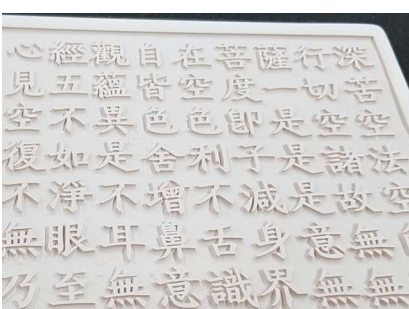 心經觀自在菩薩行深
見五蘊皆空度一切苦
空不異色色即是空空
復如是舍利子是諸法
不淨不增不減是故空
無眼耳鼻舌身意無
乃至無意識界無無